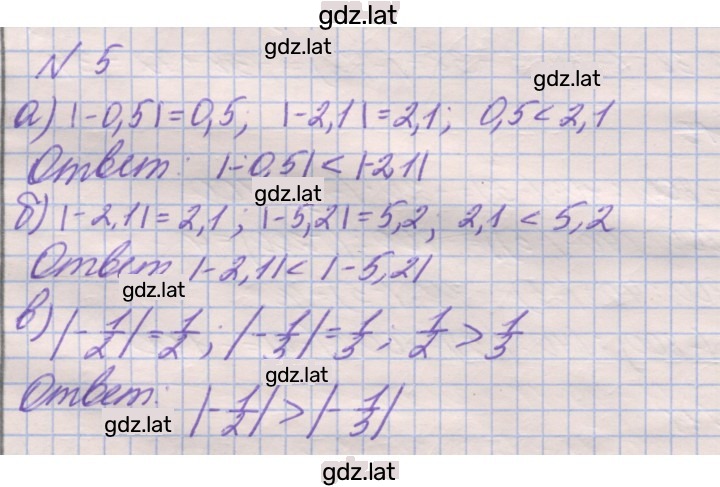 gdz.lat
gdz.lat
N 5
gdz.lat
а) |-0,5|=0,5; |-2,1|=2,1; 0,5<2,1
Ответ: |-0,5|<|-2,1|
gdz.lat
б) |-2,1|=2,1; |-5,2|=5,2; 2,1<5,2
Ответ |-2,1|<|-5,2|
gdz.lat
в) |-1/2|=1/2; |-1/3|=1/3; 1/2>1/3
gdz.lat
Ответ: |-1/2|>|-1/3|
gdz.lat
gdz.lat